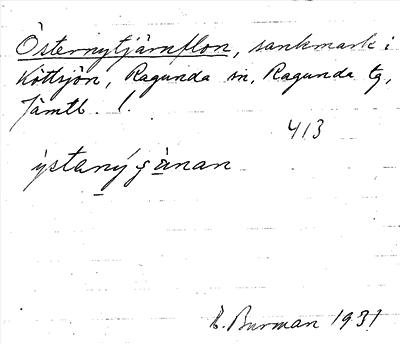 Östernytjärnflon, sankmark i
Köttsjön, Ragunda sn, Ragunda tg,
Jämtl. !.
413
ýstaný ɕànan
B. Burman 1931